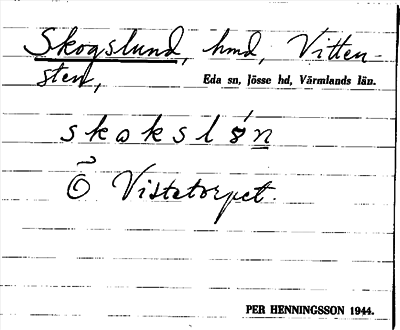 Skogslund, hmd, Vitten-
sten,
Eda sn, Jösse hd, Värmlands län.
skoksløń
Õ Vistetorpet.
PER HENNINGSSON 1944.